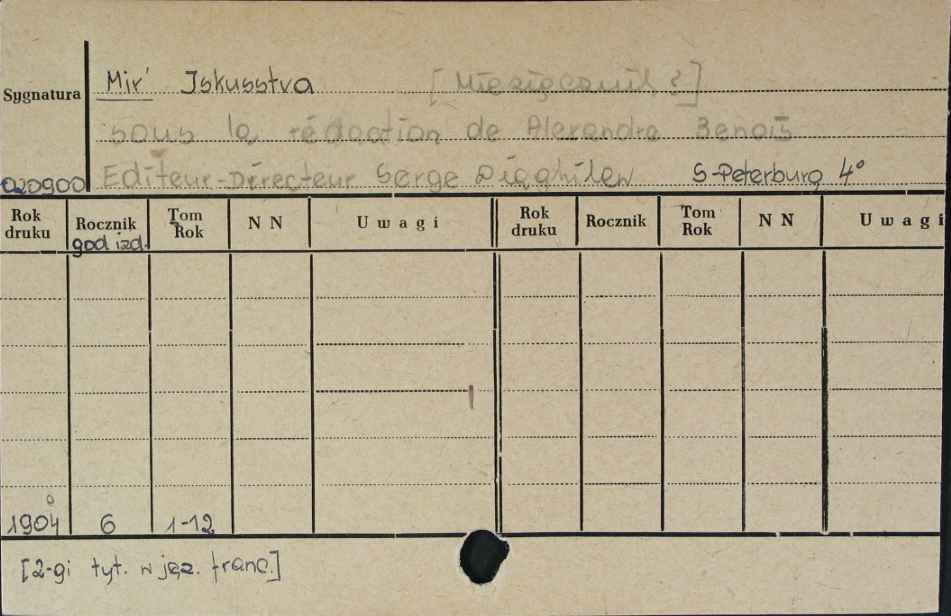 Mir' Iskusstva [Miesięcznik?]
Sygnatura
sous la rédaction de Alexandre Benois
020900 Editeur-Directeur Serge Diaghilew S-Peterburg 4°
Rok druku Rocznik god izd. Tom Rok NN Uwagi Rok druku Rocznik Tom Rok NN Uwagi
1904 6 1-12
[2-gi tyt. w jęz. franc.]